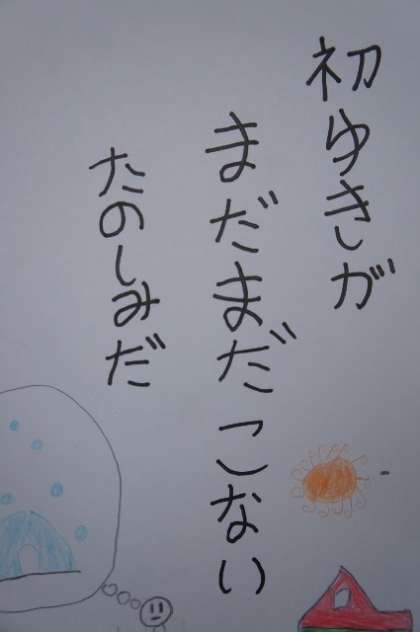 初ゆきが
まだまだこない
たのしみだ